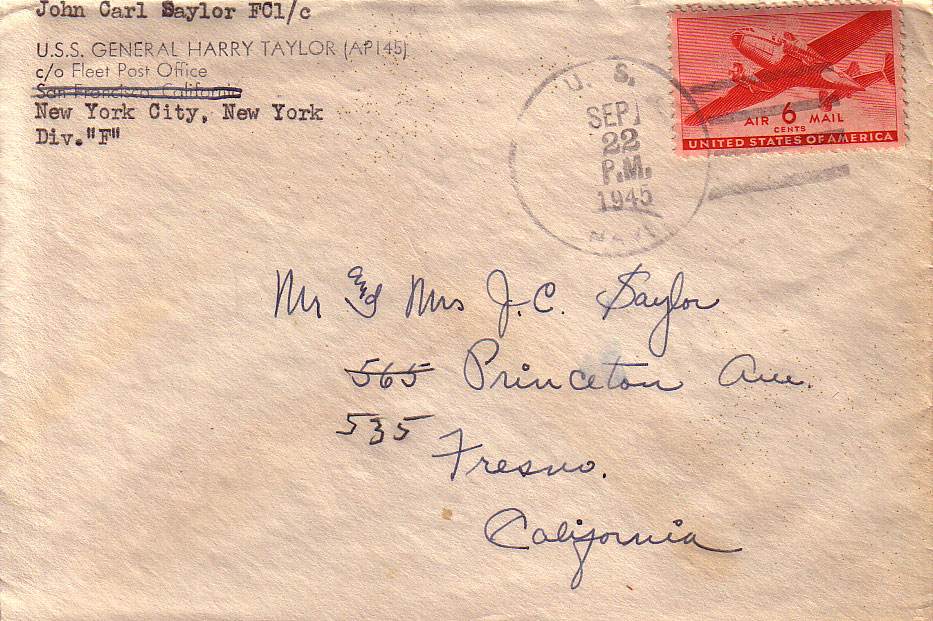 John Carl Saylor FC1/c
U.S.S. GENERAL HARRY TAYLOR (AP145)
c/o Fleet Post Office
San Francisco, California
New York City, New York
Div."F"
U. S.
SEP
22
P.M.
1945
NAVY
AIR 6 MAIL
CENTS
UNITED STATES OF AMERICA
Mr and Mrs J.C. Saylor
565 Princeton Ave.
535
Fresno.
California